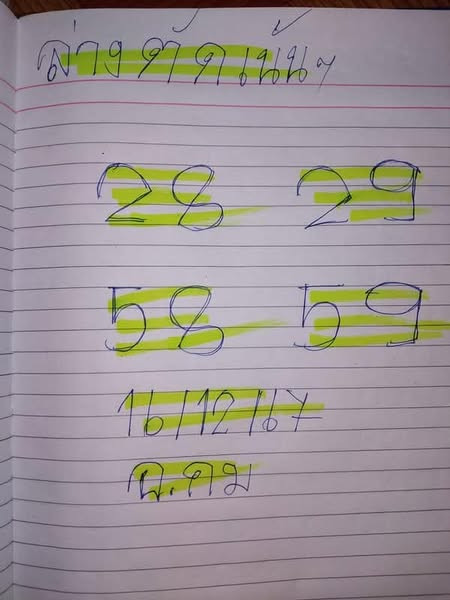 ล่างคัดเน้นๆ
28 29
58 59
16/12/67
อ.คม